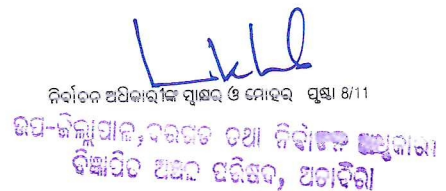 ନିର୍ବାଚନ ଅଧିକାରୀଙ୍କ ସ୍ୱାକ୍ଷର ଓ ମୋହର ପୃଷ୍ଠା 8/11
ଉପ-ଜିଲ୍ଲାପାଳ, ତଥା ନିର୍ବାଚନ ଅଧିକାରୀ
ବିଜ୍ଞାପିତ ଅଞ୍ଚଳ ପରିଷଦ, ଅତାବିରା